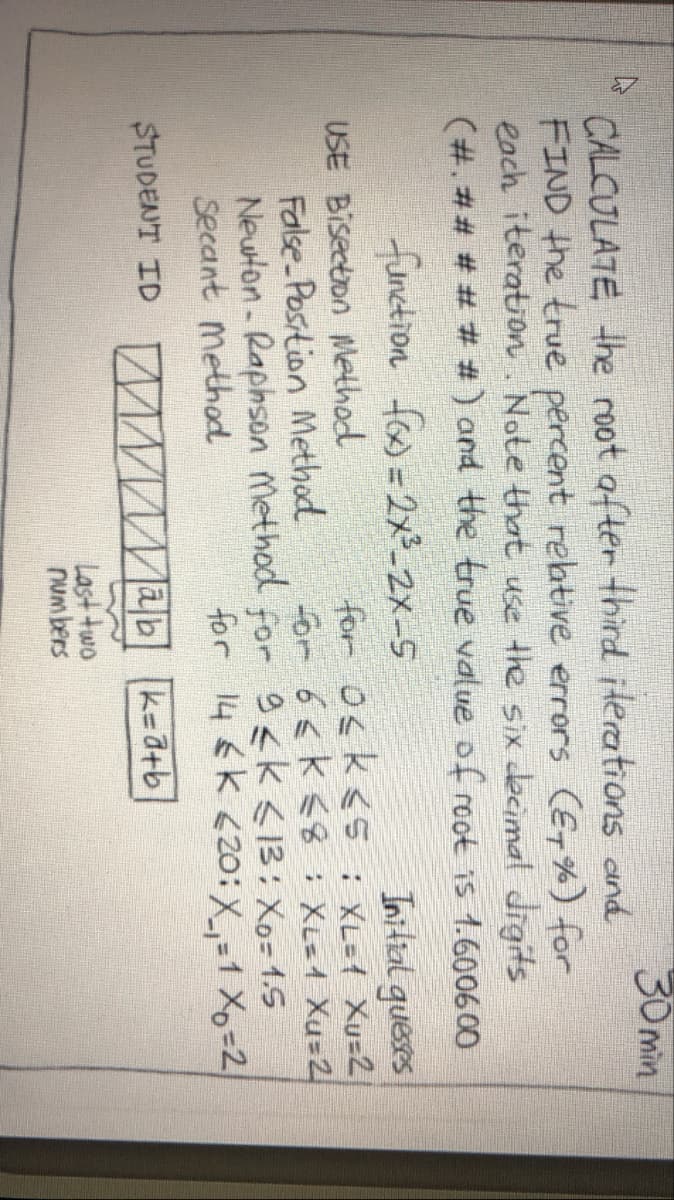 30 min
CALCULATE the root after third iterations and
FIND the true percent relative errors (ET%) for
each iteration. Note that use the six decimal digits
(#.######) and the true value of root is 1.600600
function f(x)=2x³-2x-5 Initial gueses
USE Bisection Method for 0≤k≤5 : XL=1 Xu=2
False-Position Method for 6≤k≤8 : XL=1 Xu=2
Newton-Raphson Method for 9≤k≤13: X₀=1.5
Secant Method for 14≤k≤20: X₋₁=1 X₀=2
STUDENT ID a b k=a+b
Last two
numbers